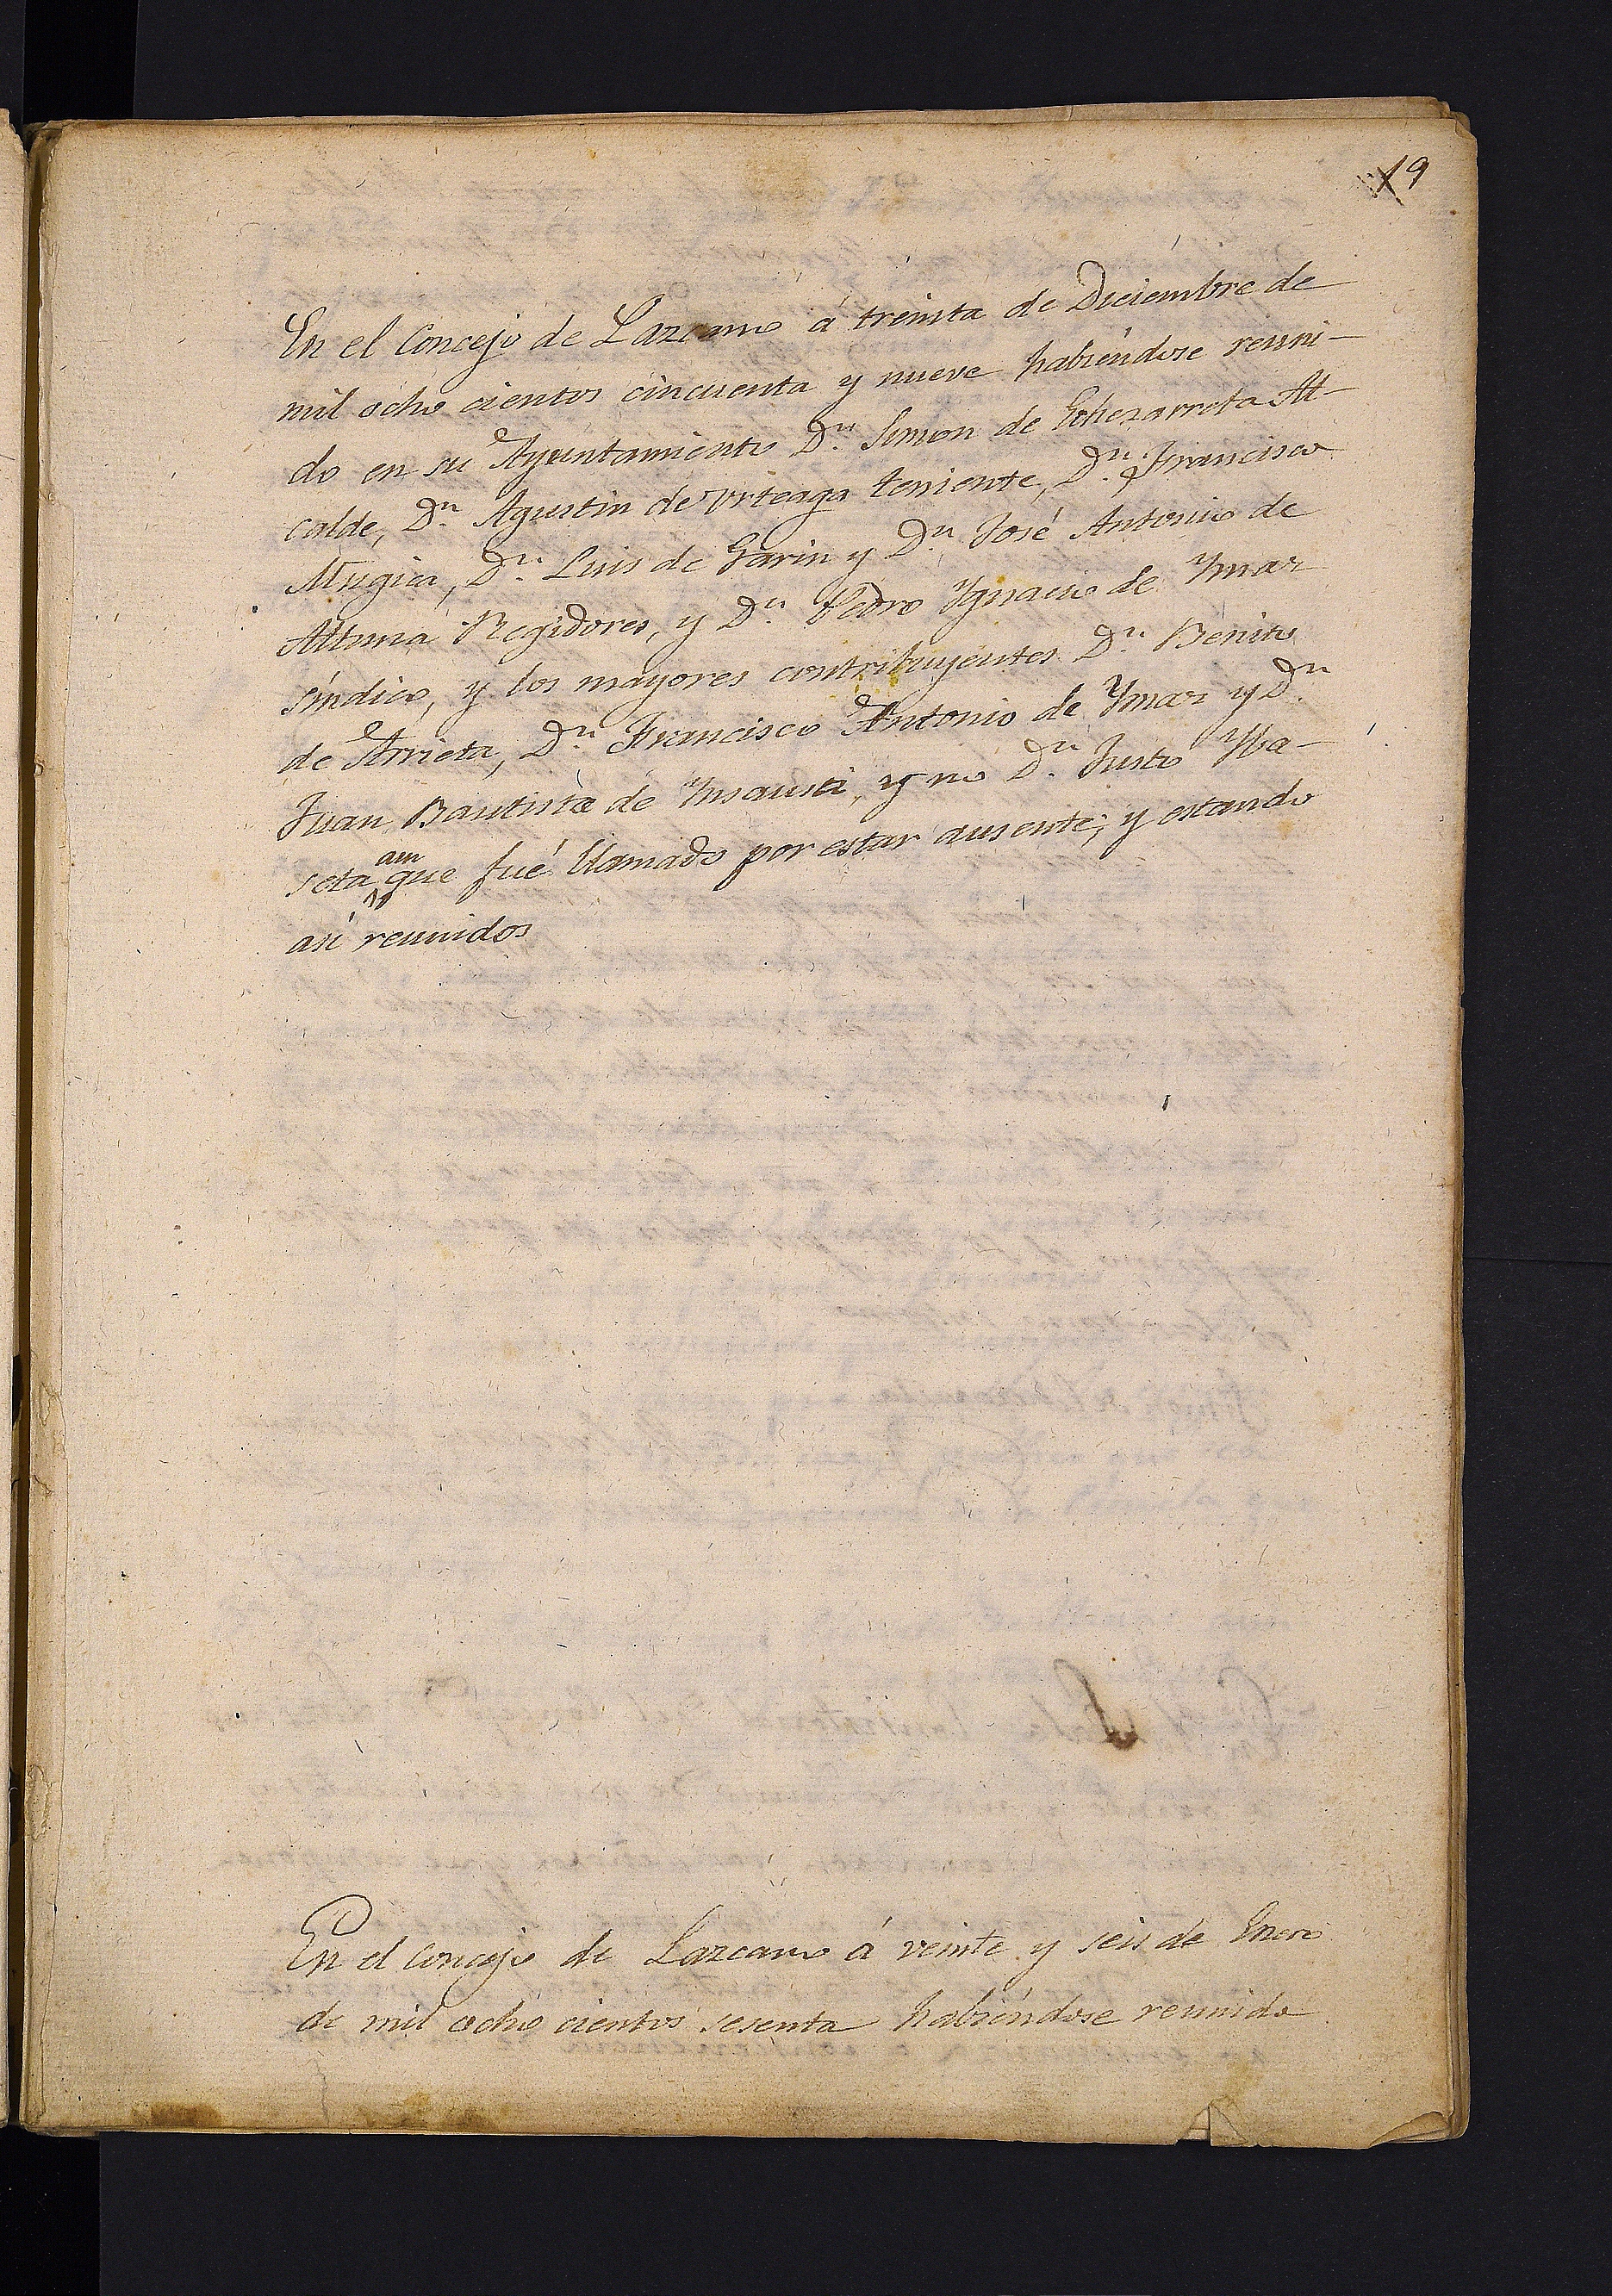 19
En el Concejo de Lazcano á treinta de Diciembre de
mil ocho cientos cincuenta y nueve habiéndose reuni-
do en su Ayuntamiento Dn. Simon de Echezarreta Al-
calde, Dn. Agustin de Urteaga teniente, Dn. Francisco
Mugica, Dn. Luis de Garin y Dn. José Antonio de
Altuna Regidores, y Dn. Pedro Ygnacio de Ymaz
síndico, y los mayores contribuyentes Dn. Benito
de Arrieta, Dn. Francisco Antonio de Ymaz y Dn.
Juan Bautista de Ynsausti, y no Dn. Justo Ysa-
seta aun que fué llamado por estar ausente; y estando
asi reunidos
En el Concejo de Lazcano á veinte y seis de Enero
de mil ocho cientos sesenta habiéndose reunido